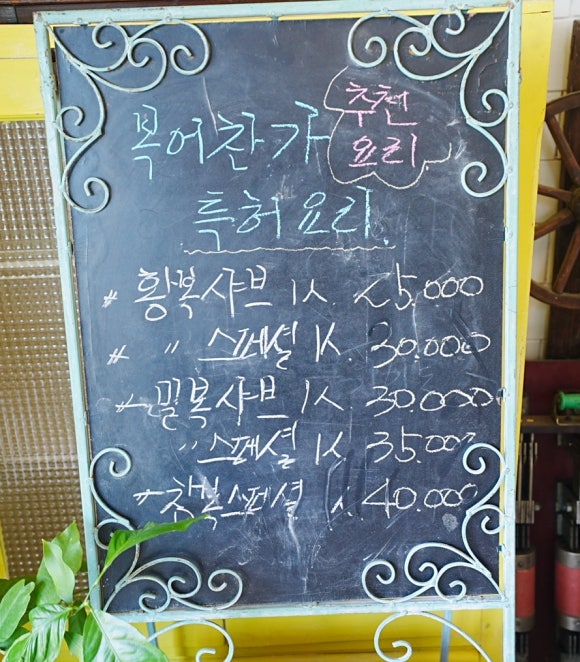 복어찬가 추천
요리
특허요리.
* 황복샤브 1人. 25.000
* 〃 스페셜 1人. 30.000
* 밀복샤브 1人. 30.000
〃 스페셜 1人. 35.000
* 참복스페셜 1人. 40.000